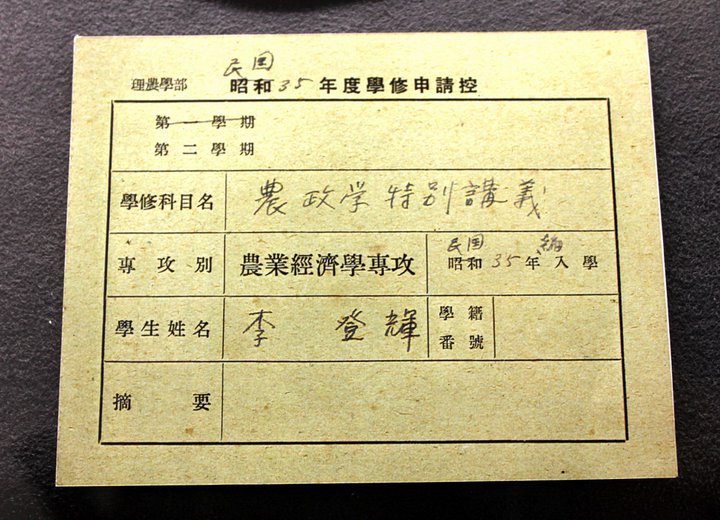 民国
理農學部 昭和35年度學修申請控
第一學期
第二學期
學修科目名 農政学特別講義
民国 編
專攻別 農業經濟學專攻 昭和35年入學
學生姓名 李登輝 學籍番號
摘要